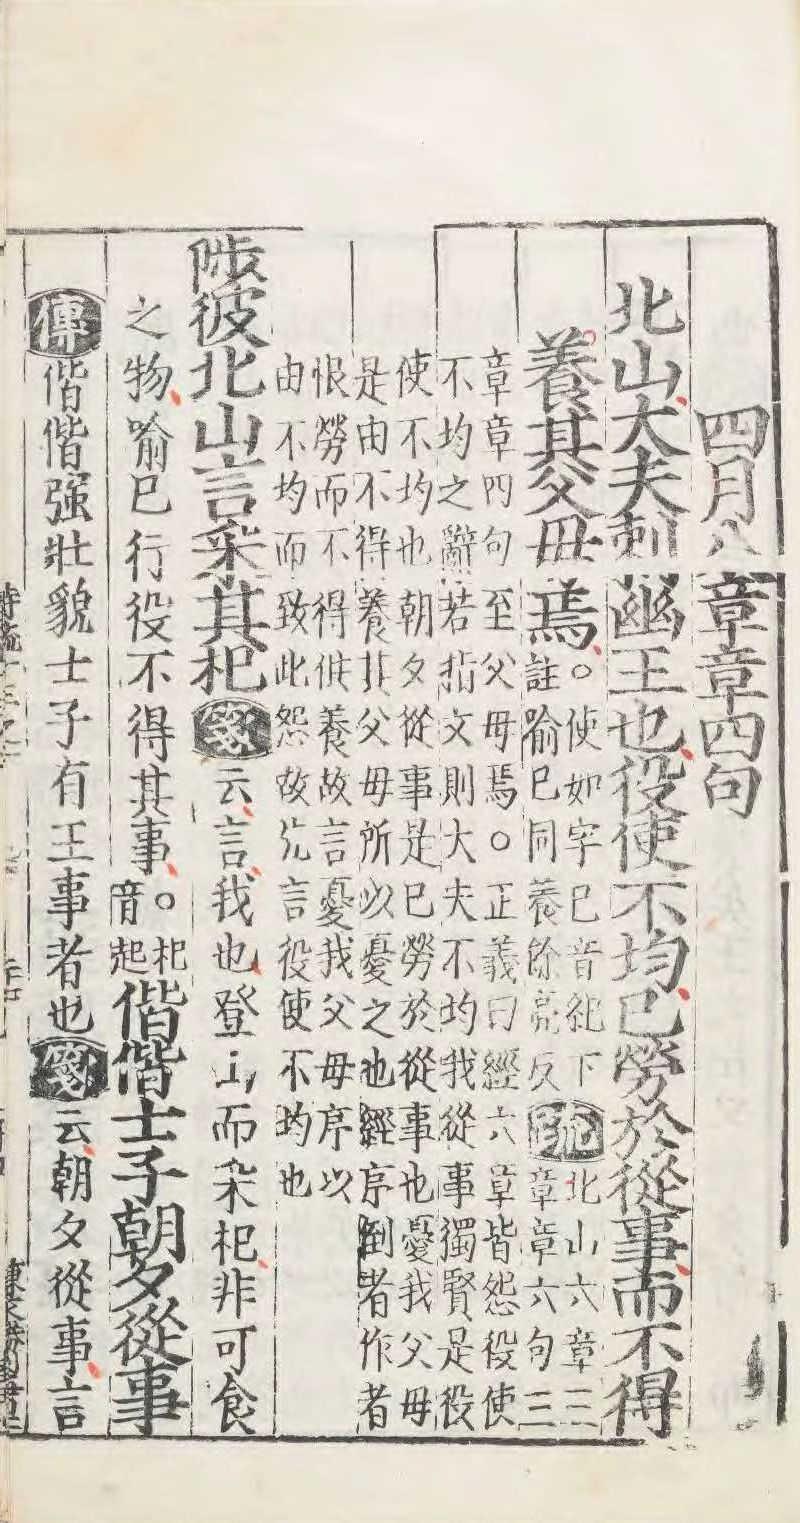 四月八章章四句
北山大夫刺幽王也役使不均已勞於從事而不得
養其父母焉
。使如字已音紀下
註喻已同養餘亮反
疏
北山六章三
章章六句三
章章四句至父母焉。正義曰經六章皆怨役使
不均之辭若指文則大夫不均我從事獨賢是役
使不均也朝夕從事是已勞於從事也憂我父母
是由不得養其父母所以憂之也經序倒者作者
恨勞而不得供養故言憂我父母序以
由不均而致此怨故先言役使不均也
陟彼北山言采其杞
箋云言我也登山而采杞非可食
之物喻已行役不得其事。
杞
音起
偕偕士子朝夕從事
傳偕偕强壯貌士子有王事者也箋云朝夕從事言